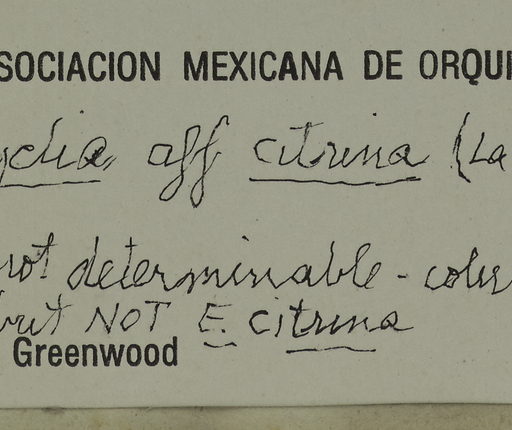 SOCIACION MEXICANA DE ORQUI
yclia aff citrina (La
not determinable - color
but NOT E. citrina
Greenwood